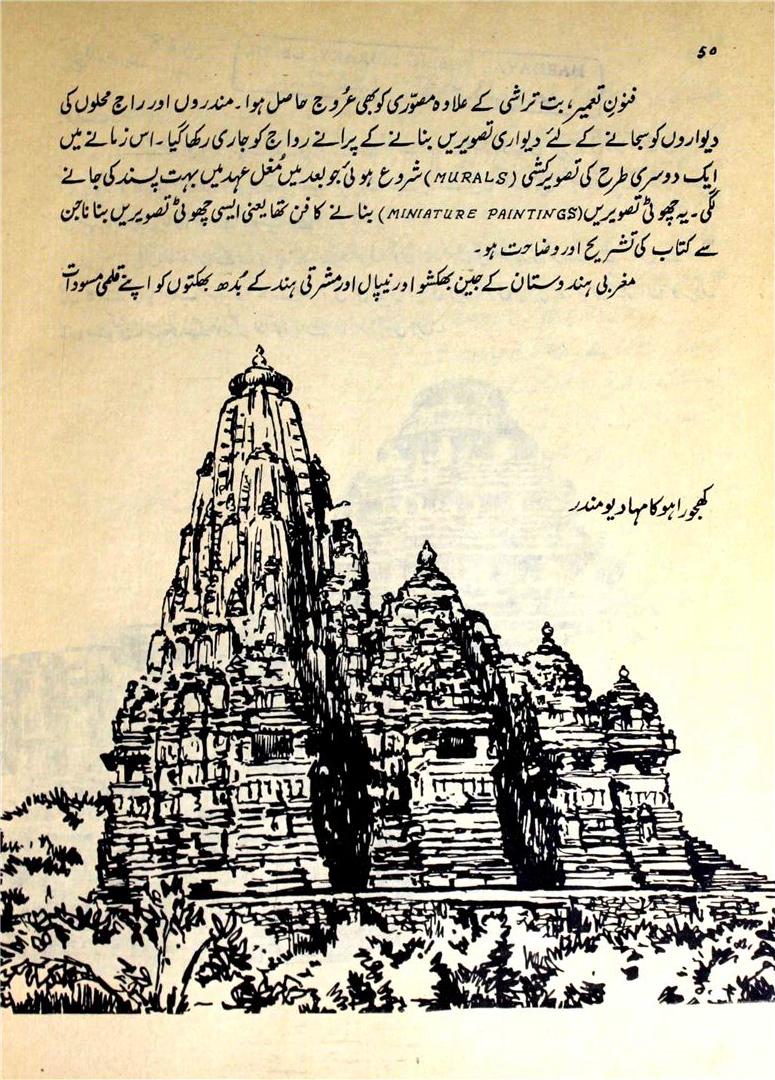 ۵۰
فنونِ تعمیر، بت تراشی کے علاوہ مصوّری کو بھی عُروج حاصل ہوا۔ مندروں اور راج محلوں کی
دیواروں کو سجانے کے لئے دیواری تصویریں بنانے کے پرانے رواج کو جاری رکھا گیا۔ اس زمانے میں
ایک دوسری طرح کی تصویر کشی (MURALS) شروع ہوئی جو بعد میں مُغل عہد میں بہت پسند کی جانے
لگی۔ یہ چھوٹی تصویریں (MINIATURE PAINTINGS) بنانے کا فن تھا یعنی ایسی چھوٹی تصویریں بنانا جن
سے کتاب کی تشریح اور وضاحت ہو۔
مغربی ہندوستان کے جین بھکشو اور نیپال اور مشرقی ہند کے بُدھ بھکتوں کو اپنے قلمی مسودات
کھجوراہو کا مہادیو مندر